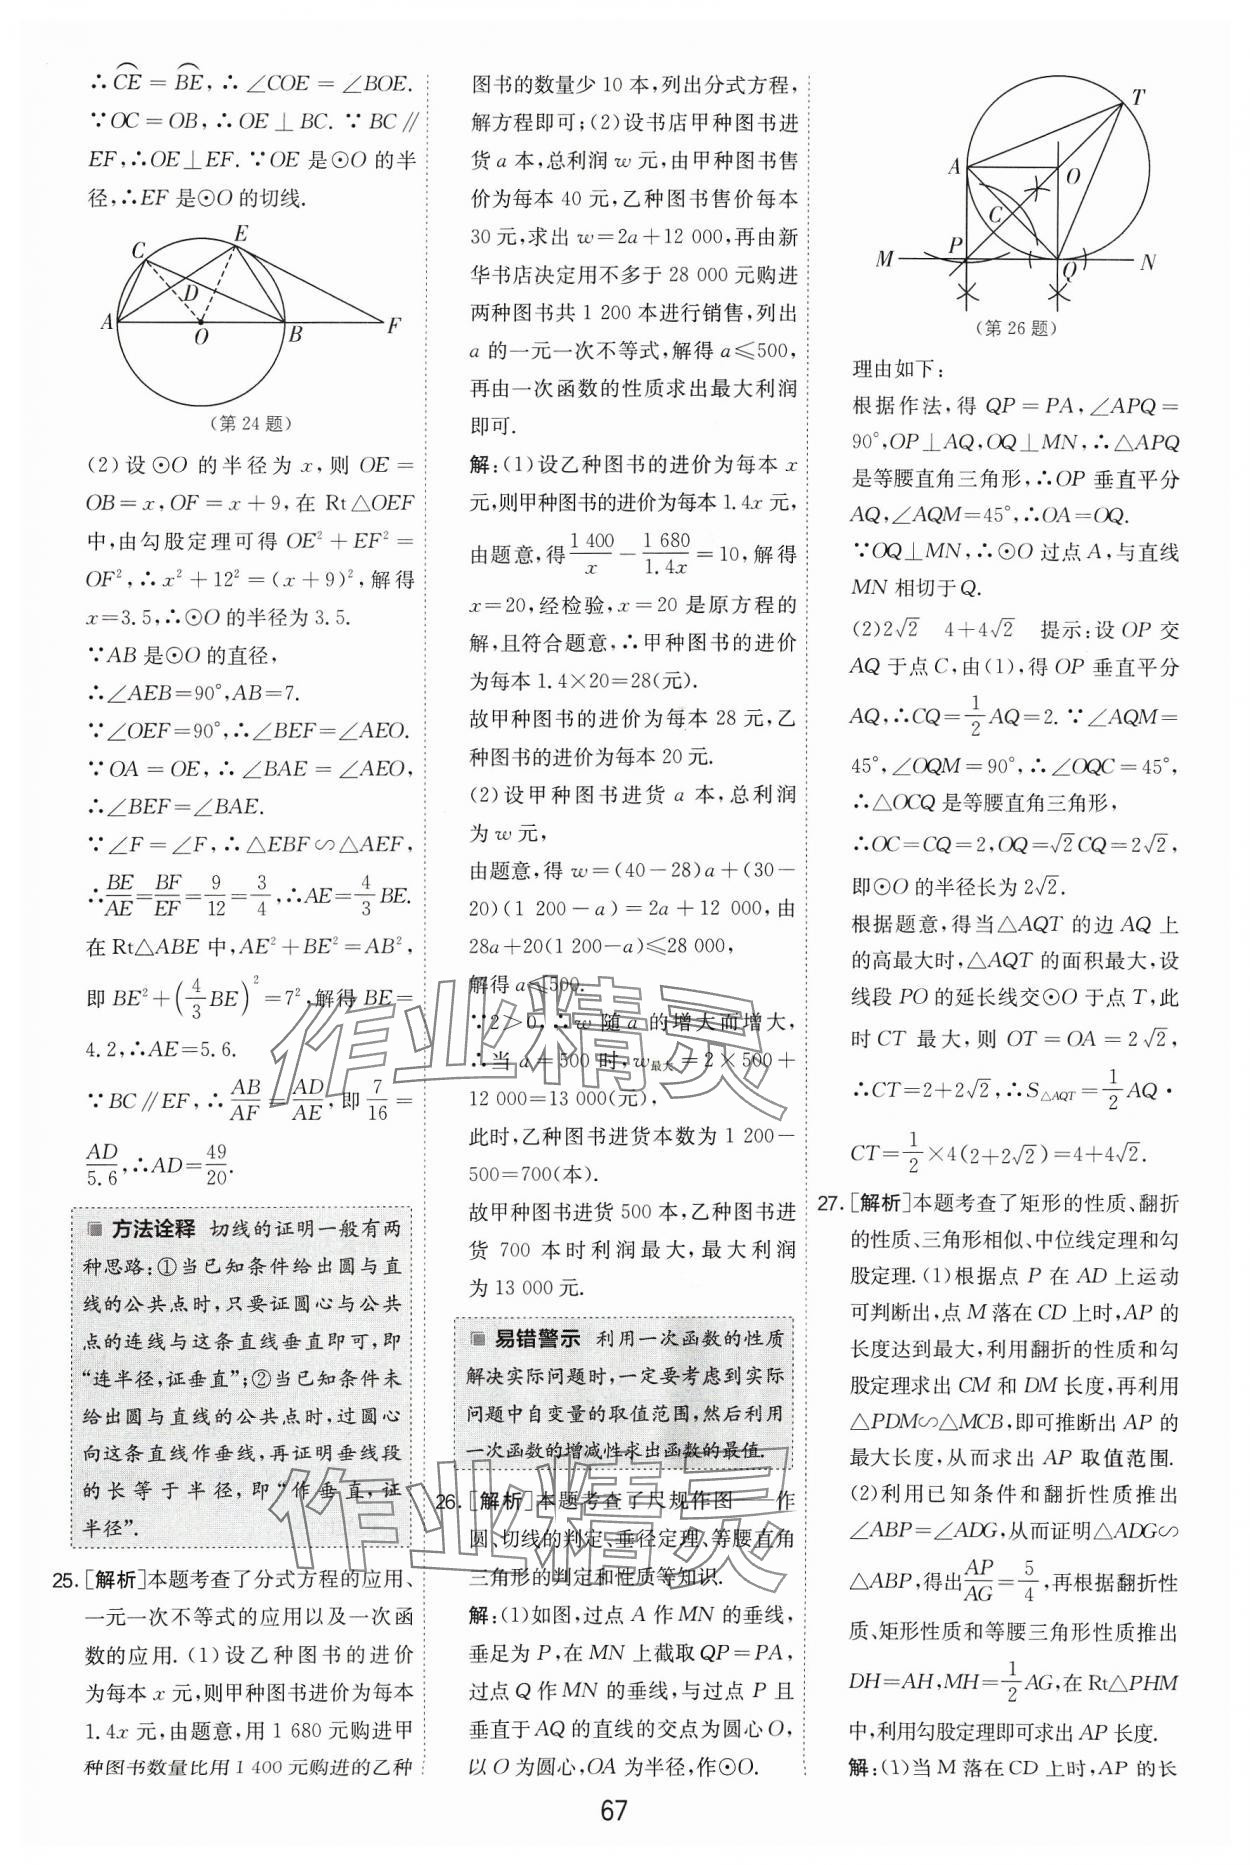 ∴CE=BE,∴∠COE=∠BOE.
∵OC=OB,∴OE⊥BC.∵BC∥
EF,∴OE⊥EF.∵OE是⊙O的半
径,∴EF是⊙O的切线.
C
E
D
A
O
B
F
(第24题)
(2)设⊙O的半径为x,则OE=
OB=x,OF=x+9,在Rt△OEF
中,由勾股定理可得OE²+EF²=
OF²,∴x²+12²=(x+9)²,解得
x=3.5,∴⊙O的半径为3.5.
∵AB是⊙O的直径,
∴∠AEB=90°,AB=7.
∵∠OEF=90°,∴∠BEF=∠AEO.
∵OA=OE,∴∠BAE=∠AEO,
∴∠BEF=∠BAE.
∵∠F=∠F,∴△EBF∽△AEF,
∴BE/AE=BF/EF=9/12=3/4,∴AE=4/3BE.
在Rt△ABE中,AE²+BE²=AB²,
即BE²+(4/3BE)²=7²,解得BE=
4.2,∴AE=5.6.
∵BC∥EF,∴AB/AF=AD/AE,即7/16=
AD/5.6,∴AD=49/20.
方法诠释 切线的证明一般有两
种思路:①当已知条件给出圆与直
线的公共点时,只要证圆心与公共
点的连线与这条直线垂直即可,即
“连半径,证垂直”;②当已知条件未
给出圆与直线的公共点时,过圆心
向这条直线作垂线,再证明垂线段
的长等于半径,即“作垂直,证
半径”.
25.[解析]本题考查了分式方程的应用、
一元一次不等式的应用以及一次函
数的应用.(1)设乙种图书的进价
为每本x元,则甲种图书进价为每本
1.4x元,由题意,用1 680元购进甲
种图书数量比用1 400元购进的乙种
图书的数量少10本,列出分式方程,
解方程即可;(2)设书店甲种图书进
货a本,总利润w元,由甲种图书售
价为每本40元,乙种图书售价每本
30元,求出w=2a+12 000,再由新
华书店决定用不多于28 000元购进
两种图书共1 200本进行销售,列出
a的一元一次不等式,解得a≤500,
再由一次函数的性质求出最大利润
即可.
解:(1)设乙种图书的进价为每本x
元,则甲种图书的进价为每本1.4x元,
由题意,得1 400/x-1 680/1.4x=10,解得
x=20,经检验,x=20是原方程的
解,且符合题意,∴甲种图书的进价
为每本1.4×20=28(元).
故甲种图书的进价为每本28元,乙
种图书的进价为每本20元.
(2)设甲种图书进货a本,总利润
为w元,
由题意,得w=(40-28)a+(30-
20)(1 200-a)=2a+12 000,由
28a+20(1 200-a)≤28 000,
解得a≤500.
∵2>0,∴w随a的增大而增大,
∴当a=500时,w最大=2×500+
12 000=13 000(元),
此时,乙种图书进货本数为1 200-
500=700(本).
故甲种图书进货500本,乙种图书进
货700本时利润最大,最大利润
为13 000元.
易错警示 利用一次函数的性质
解决实际问题时,一定要考虑到实际
问题中自变量的取值范围,然后利用
一次函数的增减性求出函数的最值.
26.[解析]本题考查了尺规作图——作
圆、切线的判定、垂径定理、等腰直角
三角形的判定和性质等知识.
解:(1)如图,过点A作MN的垂线,
垂足为P,在MN上截取QP=PA,
过点Q作MN的垂线,与过点P且
垂直于AQ的直线的交点为圆心O,
以O为圆心,OA为半径,作⊙O.
T
A
O
C
P
M
Q
N
(第26题)
理由如下:
根据作法,得QP=PA,∠APQ=
90°,OP⊥AQ,OQ⊥MN,∴△APQ
是等腰直角三角形,∴OP垂直平分
AQ,∠AQM=45°,∴OA=OQ.
∵OQ⊥MN,∴⊙O过点A,与直线
MN相切于Q.
(2)2√2 4+4√2 提示:设OP交
AQ于点C,由(1),得OP垂直平分
AQ,∴CQ=1/2AQ=2.∵∠AQM=
45°,∠OQM=90°,∴∠OQC=45°,
∴△OCQ是等腰直角三角形,
∴OC=CQ=2,OQ=√2CQ=2√2,
即⊙O的半径长为2√2.
根据题意,得当△AQT的边AQ上
的高最大时,△AQT的面积最大,设
线段PO的延长线交⊙O于点T,此
时CT最大,则OT=OA=2√2,
∴CT=2+2√2,∴S△AQT=1/2AQ·
CT=1/2×4(2+2√2)=4+4√2.
27.[解析]本题考查了矩形的性质、翻折
的性质、三角形相似、中位线定理和勾
股定理.(1)根据点P在AD上运动
可判断出,点M落在CD上时,AP的
长度达到最大,利用翻折的性质和勾
股定理求出CM和DM长度,再利用
△PDM∽△MCB,即可推断出AP的
最大长度,从而求出AP取值范围.
(2)利用已知条件和翻折性质推出
∠ABP=∠ADG,从而证明△ADG∽
△ABP,得出AP/AG=5/4,再根据翻折性
质、矩形性质和等腰三角形性质推出
DH=AH,MH=1/2AG,在Rt△PHM
中,利用勾股定理即可求出AP长度.
解:(1)当M落在CD上时,AP的长
67
作业精灵
作业精灵